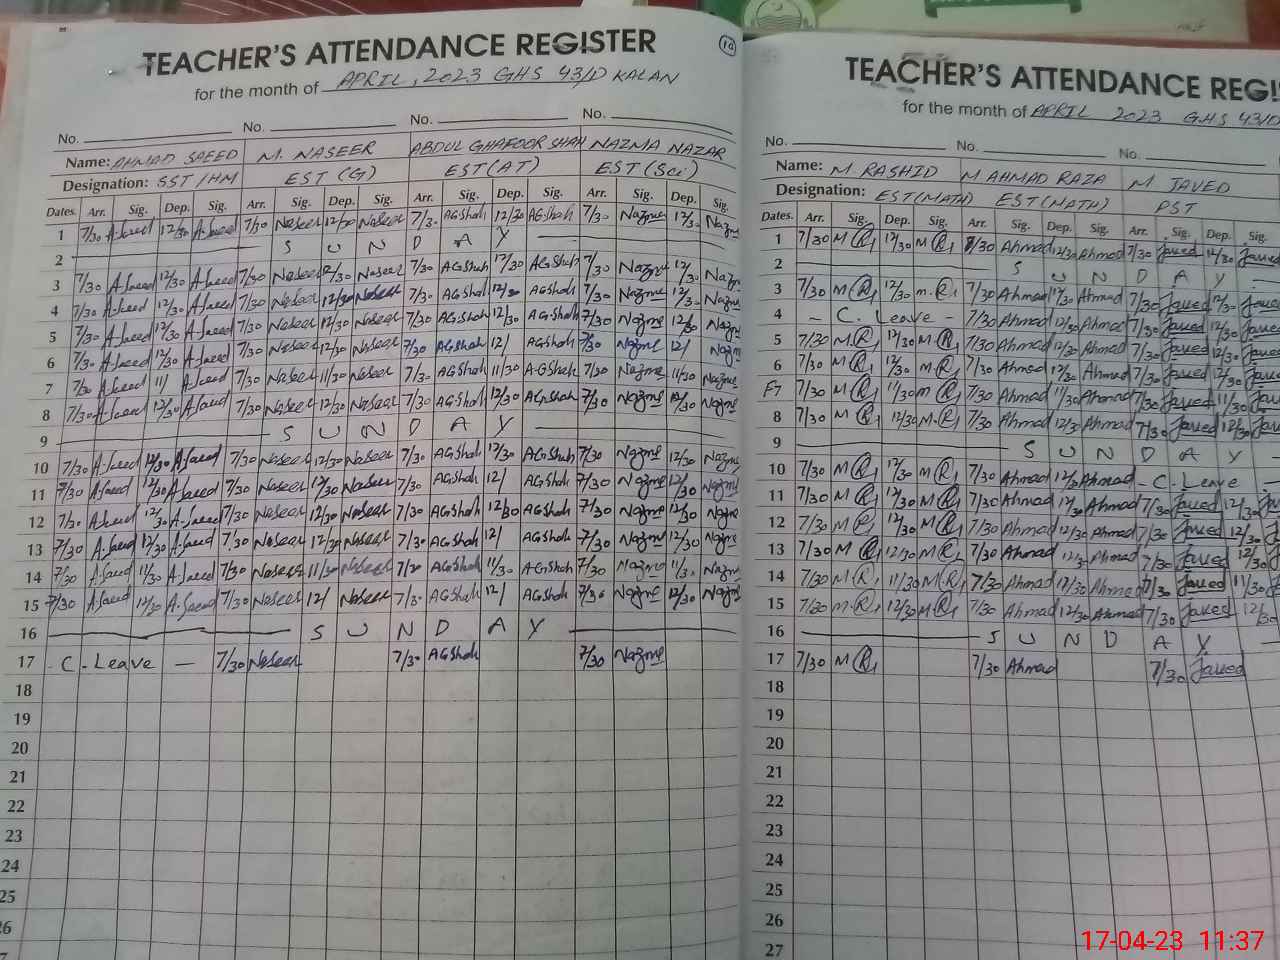 TEACHER'S ATTENDANCE REGISTER
for the month of APRIL, 2023 GHS 43/D KALAN
No. No. No. No.
Name: AHMAD SAEED M. NASEER ABDUL GHAFOOR SHAH NAZMA NAZAR
Designation: SST/HM EST (G) EST (AT) EST (Sci)
Dates. Arr. Sig. Dep. Sig. Arr. Sig. Dep. Sig. Arr. Sig. Dep. Sig. Arr. Sig. Dep. Sig.
1 7/30 A.Saeed 12/30 A.Saeed 7/30 Naseer 12/30 Naseer 7/30 AGShah 12/30 AGShah 7/30 Nazma 12/30 Nazma
2 SUNDAY
3 7/30 A.Saeed 12/30 A.Saeed 7/30 Naseer 12/30 Naseer 7/30 AGShah 12/30 AGShah 7/30 Nazma 12/30 Nazma
4 7/30 A.Saeed 12/30 A.Saeed 7/30 Naseer 12/30 Naseer 7/30 AGShah 12/30 AGShah 7/30 Nazma 12/30 Nazma
5 7/30 A.Saeed 12/30 A.Saeed 7/30 Naseer 12/30 Naseer 7/30 AGShah 12/30 AGShah 7/30 Nazma 12/30 Nazma
6 7/30 A.Saeed 12/30 A.Saeed 7/30 Naseer 12/30 Naseer 7/30 AGShah 12/ AGShah 7/30 Nazma 12/ Nazma
7 7/30 A.Saeed 11/ A.Saeed 7/30 Naseer 11/30 Naseer 7/30 AGShah 11/30 AGShah 7/30 Nazma 11/30 Nazma
8 7/30 A.Saeed 12/30 A.Saeed 7/30 Naseer 12/30 Naseer 7/30 AGShah 12/30 AGShah 7/30 Nazma 12/30 Nazma
9 SUNDAY
10 7/30 A.Saeed 12/30 A.Saeed 7/30 Naseer 12/30 Naseer 7/30 AGShah 12/30 AGShah 7/30 Nazma 12/30 Nazma
11 7/30 A.Saeed 12/30 A.Saeed 7/30 Naseer 12/30 Naseer 7/30 AGShah 12/ AGShah 7/30 Nazma 12/30 Nazma
12 7/30 A.Saeed 12/30 A.Saeed 7/30 Naseer 12/30 Naseer 7/30 AGShah 12/30 AGShah 7/30 Nazma 12/30 Nazma
13 7/30 A.Saeed 12/30 A.Saeed 7/30 Naseer 12/30 Naseer 7/30 AGShah 12/ AGShah 7/30 Nazma 12/30 Nazma
14 7/30 A.Saeed 11/30 A.Saeed 7/30 Naseer 11/30 Naseer 7/30 AGShah 11/30 AGShah 7/30 Nazma 11/30 Nazma
15 7/30 A.Saeed 12/30 A.Saeed 7/30 Naseer 12/ Naseer 7/30 AGShah 12/ AGShah 7/30 Nazma 12/30 Nazma
16 SUNDAY
17 - C - Leave - 7/30 Naseer 7/30 AGShah 7/30 Nazma
18
19
20
21
22
23
24
25
26
TEACHER'S ATTENDANCE REGIS
for the month of APRIL 2023 GHS 43/D
No. No. No.
Name: M. RASHID M AHMAD RAZA M JAVED
Designation: EST (MATH) EST (MATH) PST
Dates. Arr. Sig. Dep. Sig. Arr. Sig. Dep. Sig. Arr. Sig. Dep. Sig.
1 7/30 M R 12/30 M R 7/30 Ahmad 12/30 Ahmad 7/30 Javed 12/30 Javed
2 SUNDAY
3 7/30 M R 12/30 M R 7/30 Ahmad 12/30 Ahmad 7/30 Javed 12/30 Javed
4 - C. Leave - 7/30 Ahmad 12/30 Ahmad 7/30 Javed 12/30 Javed
5 7/30 M R 12/30 M R 7/30 Ahmad 12/30 Ahmad 7/30 Javed 12/30 Javed
6 7/30 M R 12/30 M R 7/30 Ahmad 12/30 Ahmad 7/30 Javed 12/30 Javed
F7 7/30 M R 11/30 M R 7/30 Ahmad 11/30 Ahmad 7/30 Javed 11/30 Javed
8 7/30 M R 12/30 M R 7/30 Ahmad 12/30 Ahmad 7/30 Javed 12/30 Javed
9 SUNDAY
10 7/30 M R 12/30 M R 7/30 Ahmad 12/30 Ahmad - C - Leave -
11 7/30 M R 12/30 M R 7/30 Ahmad 12/30 Ahmad 7/30 Javed 12/30
12 7/30 M R 12/30 M R 7/30 Ahmad 12/30 Ahmad 7/30 Javed 12/30
13 7/30 M R 12/30 M R 7/30 Ahmad 12/30 Ahmad 7/30 Javed 12/30
14 7/30 M R 11/30 M R 7/30 Ahmad 11/30 Ahmad 7/30 Javed 11/30
15 7/30 M R 12/30 M R 7/30 Ahmad 12/30 Ahmad 7/30 Javed 12/30
16 SUNDAY
17 7/30 M R 7/30 Ahmad 7/30 Javed
18
19
20
21
22
23
24
25
26
27
17-04-23 11:37